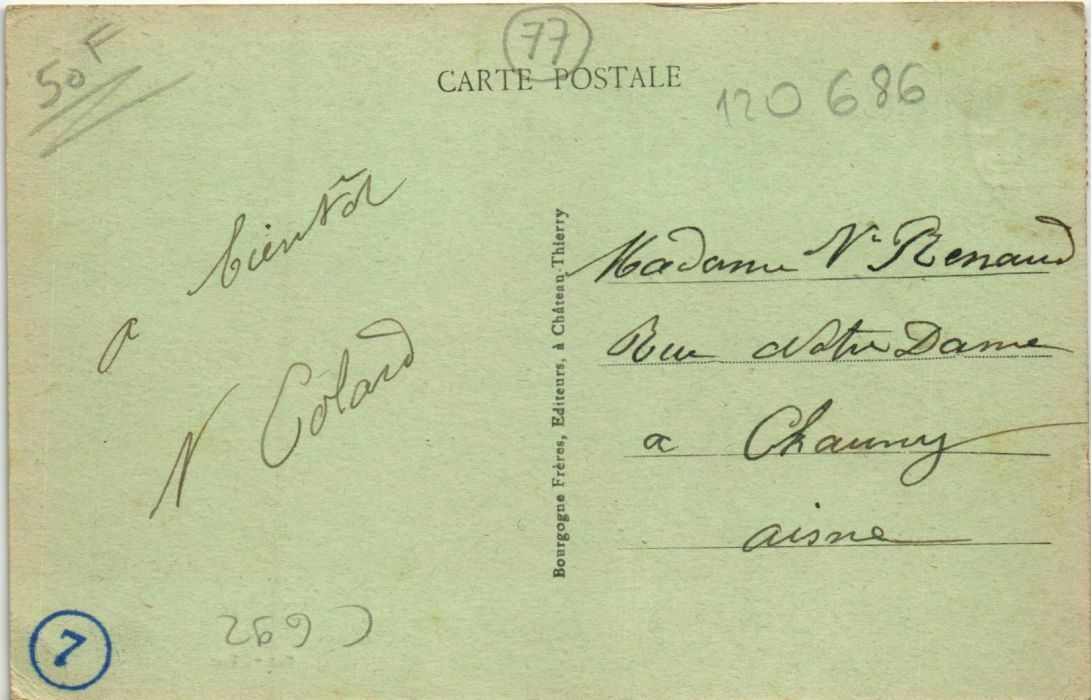 50F
77
CARTE POSTALE
120 686
a bientôt
N Colard
Bourgogne Frères, Editeurs, à Château-Thierry
Madame Vᵉ Renaud
Rue Notre Dame
a Chauny
aisne
7
C692